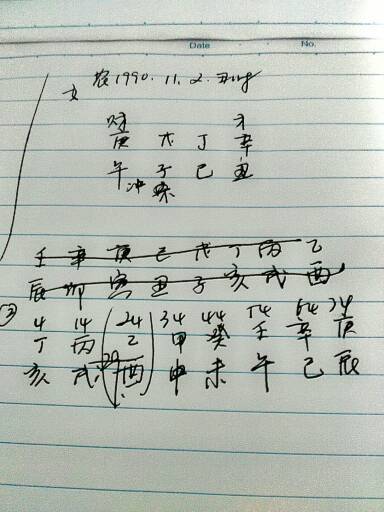 Date No.
女 农1990.11.2.
财 才
庚 木 丁 辛
午 子 己 丑
冲
壬 辛 庚 己 戊 丁 丙 乙
辰 卯 寅 丑 子 亥 戌 酉
③ 4 14 24 34 44 54 64 74
丁 丙 乙 甲 癸 壬 辛 庚
29
亥 戌 酉 申 未 午 巳 辰